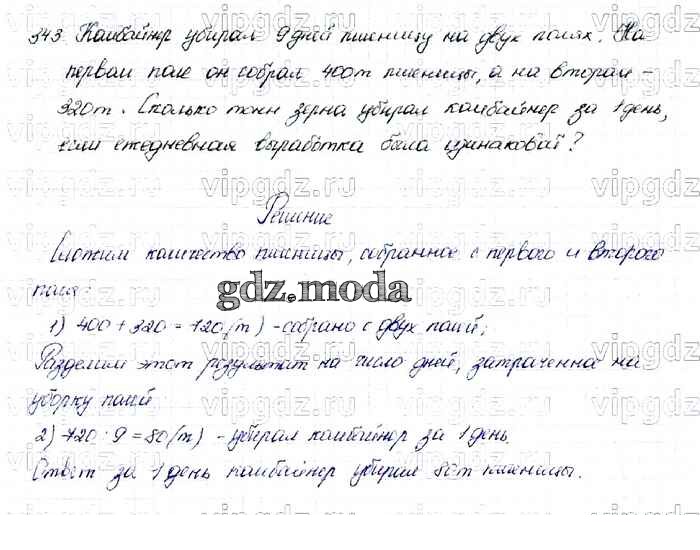 343. Комбайнер убирал 9 дней пшеницу на двух полях. На
первом поле он собрал 400 т пшеницы, а на втором –
320 т. Сколько тонн зерна убирал комбайнер за 1 день,
если ежедневная выработка была одинаковой?
Решение
Сложим количество пшеницы, собранное с первого и второго
поля:
gdz.moda
1) 400 + 320 = 720 (т) - собрано с двух полей;
Разделим этот результат на число дней, затраченно на
уборку полей
2) 720 : 9 = 80 (т) - убирал комбайнер за 1 день.
Ответ за 1 день комбайнер убирал 80 т пшеницы.
vipgdz.ru vipgdz.ru vipgdz.ru vipgdz